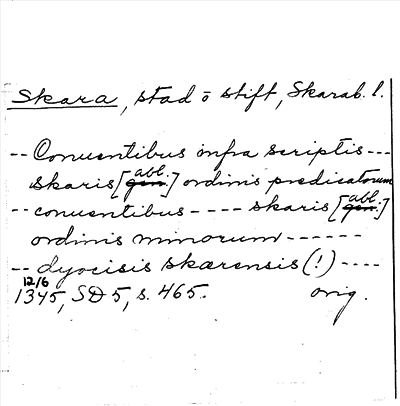 Skara, stad o stift, Skarab. l.
-- Conuentibus infra scriptis ---
skaris [gen. abl.] ordinis predicatorum
-- conuentibus ---- skaris [gen. abl.]
ordinis minorum ------
-- dyocisis skarensis (!) ----
12/6
1345, SD 5, s. 465. orig.